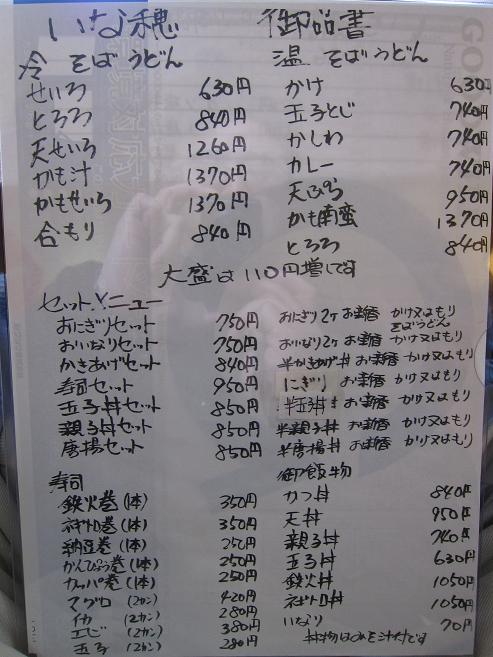 いなほ穂 御品書
冷 そばうどん
せいろ 630円
とろろ 840円
天せいろ 1260円
かも汁 1370円
かもせいろ 1370円
合もり 840円
温 そばうどん
かけ 630円
玉子とじ 740円
かしわ 740円
カレー 740円
天ぷら 950円
かも南蛮 1370円
とろろ 840円
大盛は110円増しです
セットメニュー
おにぎりセット 750円 おにぎり2ケ お新香 かけ又はもり
そばうどん
おいなりセット 750円 おいなり2ケ お新香 かけ又はもり
かきあげセット 840円 半かきあげ丼 お新香 かけ又はもり
寿司セット 950円 にぎり お新香 かけ又はもり
玉子丼セット 850円 半玉子丼 お新香 かけ又はもり
親子丼セット 850円 半親子丼 お新香 かけ又はもり
唐揚セット 850円 半唐揚丼 お新香 かけ又はもり
寿司
鉄火巻(1本) 350円
ネギトロ巻(1本) 350円
納豆巻(1本) 250円
かんぴょう巻(1本) 250円
カッパ巻(1本) 250円
マグロ(2カン) 420円
イカ(2カン) 280円
エビ(2カン) 380円
玉子(2カン) 280円
御飯物
かつ丼 840円
天丼 950円
親子丼 740円
玉子丼 630円
鉄火丼 1050円
ネギトロ丼 1050円
いなり 70円
丼物はみそ汁付です